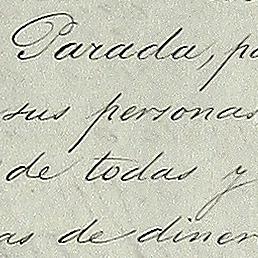 Parada, pa
sus personas
de todas y
as de diner